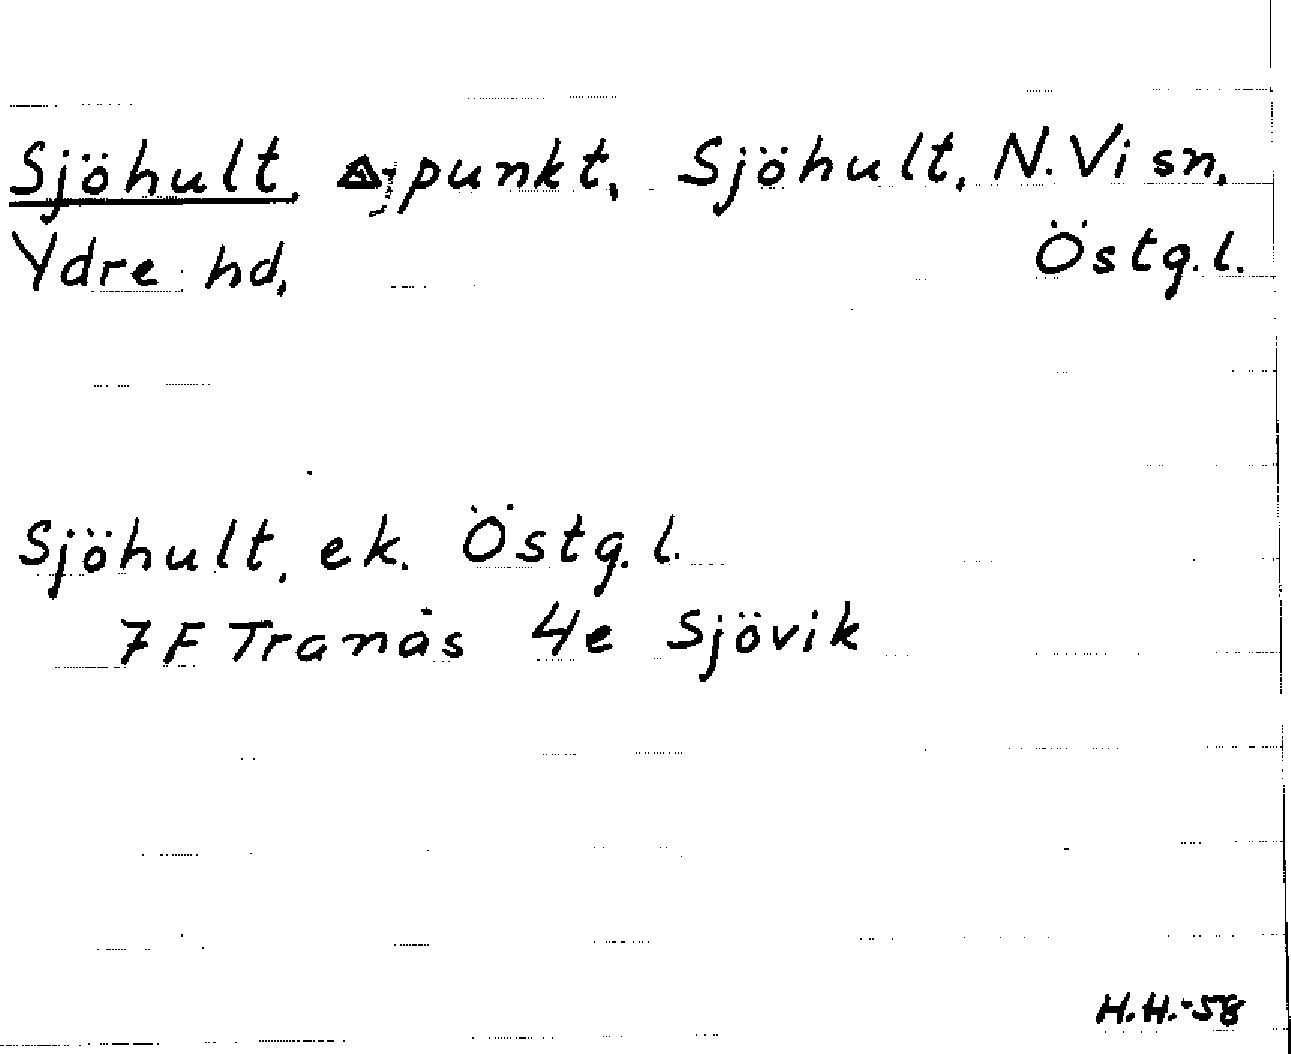 Sjöhult, △-punkt, Sjöhult, N. Vi sn,
Ydre hd, Östg. l.
Sjöhult, ek. Östg. l.
7F Tranås 4e Sjövik
H.H.-58